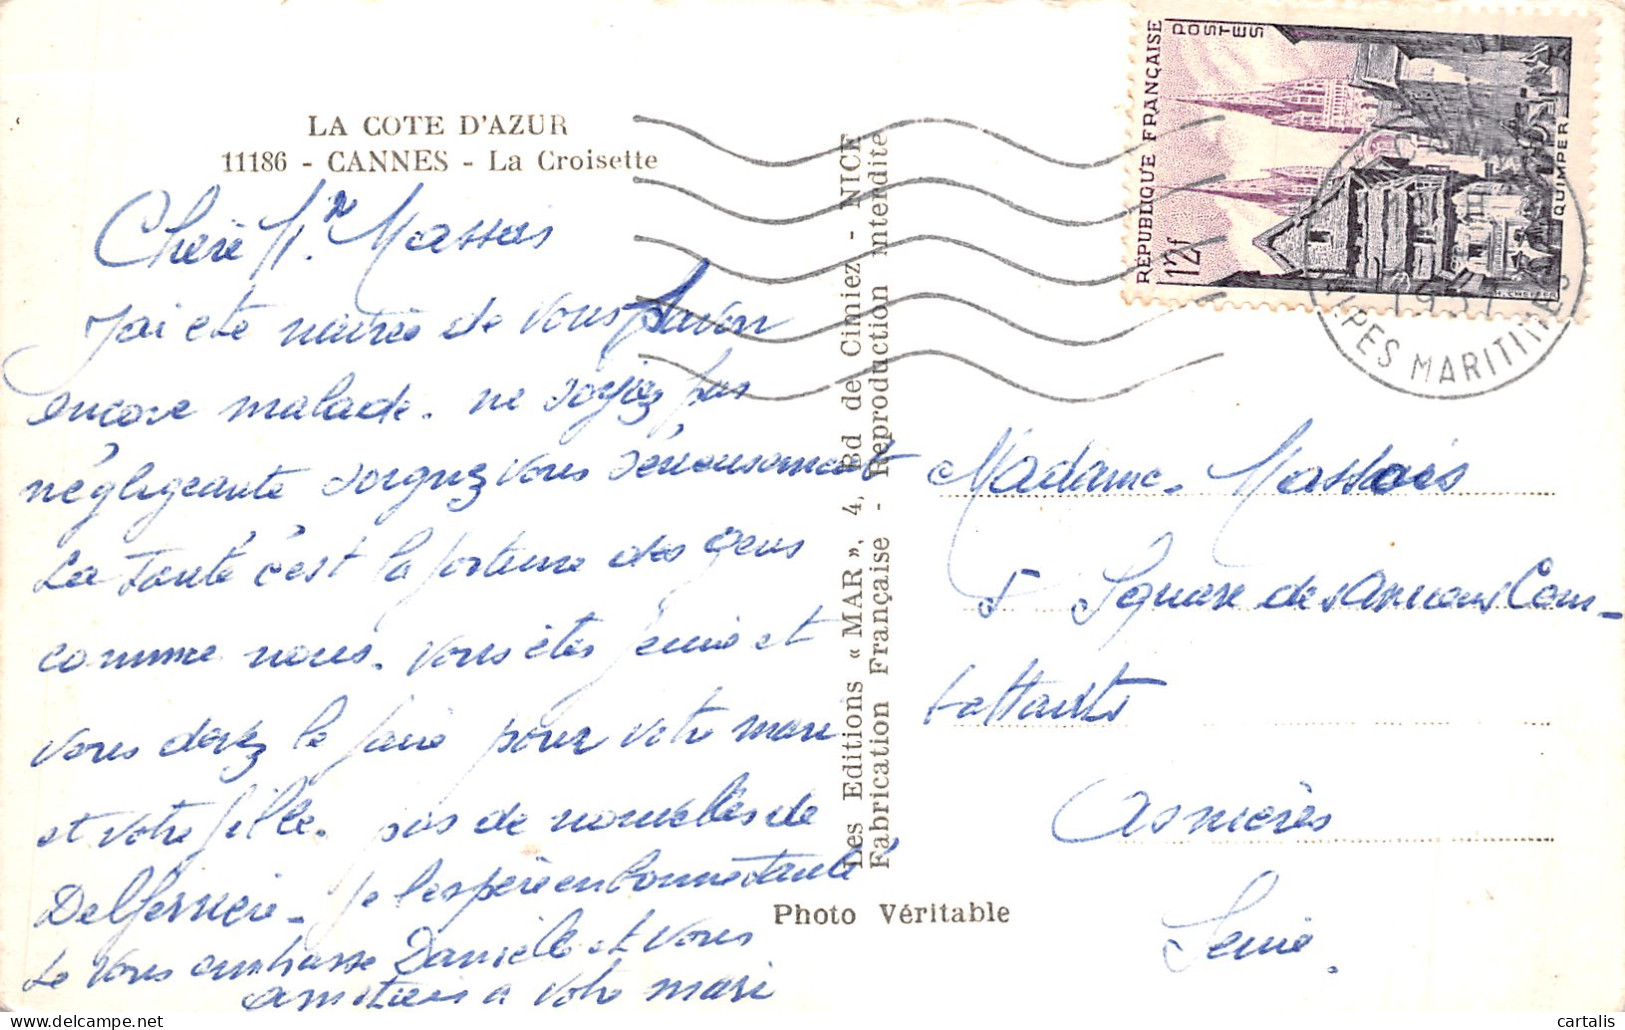 LA COTE D'AZUR
11186 - CANNES - La Croisette
Chère Mme Massois
J'ai été navrée de vous savoir
encore malade. ne soyiez pas
négligeante soignez vous sérieusement
La santé c'est la fortune des gens
comme nous. Vous êtes jeune et
vous devez le faire pour votre mari
et votre fille. pas de nouvelles de
Delferrière. Je l'espère en bonne santé
Je vous embrasse Danielle et vous
amitiés a votre mari
Les Editions « MAR », 4, Bd de Cimiez - NICE
Fabrication Française - Reproduction interdite
Photo Véritable
RÉPUBLIQUE FRANÇAISE
POSTES
12f
QUIMPER
1957
ALPES MARITIMES
Madame. Massois
5 Square des Anciens Com-
battants
Asnières
Seine.
cartalis